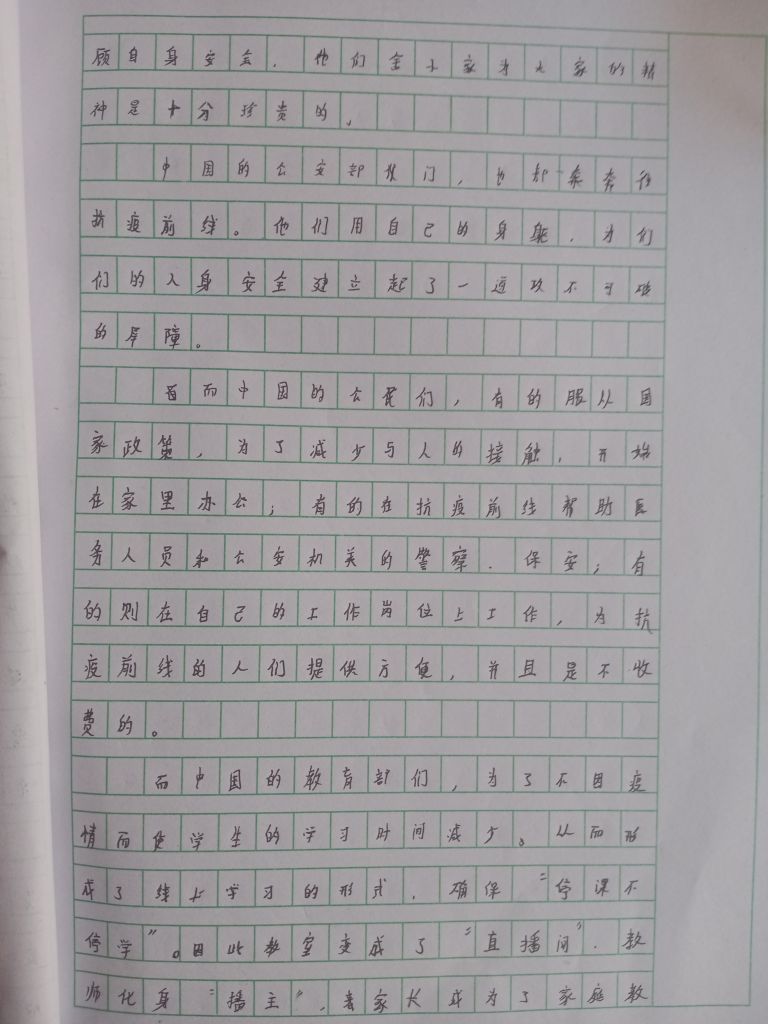 顾自身安全，他们舍小家为大家的精
神是十分珍贵的，
中国的公安部门，也却亲奔往
抗疫前线。他们用自己的身躯，为们
们的人身安全建立起了一道攻不可破
的屏障。
而中国的公民们，有的服从国
家政策，为了减少与人的接触，开始
在家里办公；有的在抗疫前线帮助医
务人员和公安机关的警察、保安；有
的则在自己的工作岗位上工作，为抗
疫前线的人们提供方便，并且是不收
费的。
而中国的教育部们，为了不因疫
情而使学生的学习时间减少。从而形
成了线上学习的形式，确保“停课不
停学”。因此教室变成了“直播间”，教
师化身“播主”，家长成为了家庭教